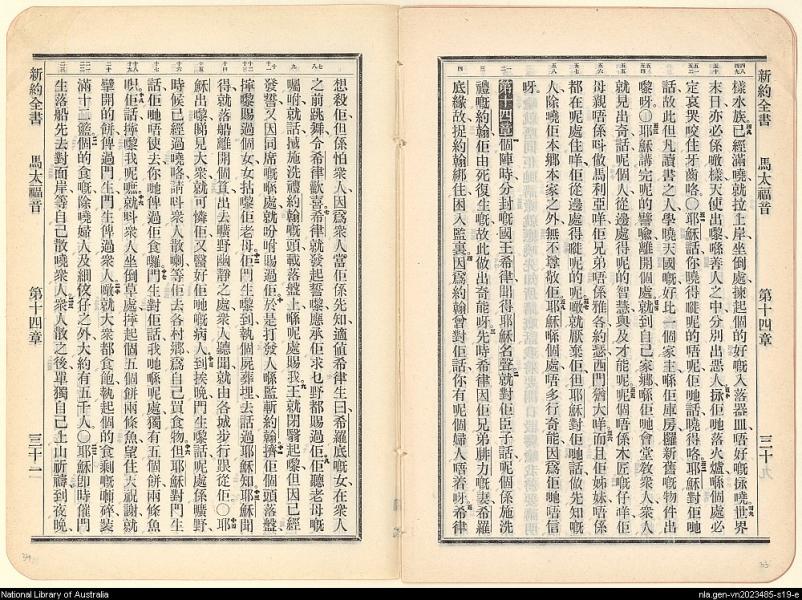 新約全書 馬太福音 第十四章 三十
樣水族已經滿曉就拉上岸坐倒處揀起個的好嘅入落器皿唔好嘅捹曉世界
末日亦必係噉樣天使出嚟喺善人之中分別出惡人捹佢哋落火爐喺個處必
定哀哭咬住牙齒咯〇耶穌話你曉得呢的唔呢佢哋話曉得咯耶穌對佢哋
話故此但凡讀書之人學曉天國嘅好比一個家主喺佢庫房攞新舊嘅物件出
嚟呀〇耶穌講完呢的譬喻離開個處就到自己家鄉喺佢哋會堂教衆人衆人
就見出奇話呢個人從邊處得呢的智慧與及才能呢呢個唔係木匠嘅仔咩佢
母親唔係呌做馬利亞咩佢兄弟唔係雅各約瑟西門猶大咩而且佢姊妹唔係
都在呢處住咩佢從邊處得呢的呢噉就厭棄佢但耶穌對佢哋話做先知嘅
人除曉佢本鄉本家之外無不尊敬佢耶穌喺個處唔多行奇能因爲佢哋唔信
呀
第十四章 個陣時分封嘅國王希律聞得耶穌名聲就對佢臣子話呢個係施洗
禮嘅約翰佢由死復生嘅故此做出奇能呀先時希律因佢兄弟腓力嘅妻希羅
底緣故捉約翰綁住困入監裏因爲約翰曾對佢話你有呢個婦人唔着呀希律
想殺佢但係怕衆人因爲衆人當佢係先知適値希律生日希羅底嘅女在衆人
之前跳舞令希律歡喜希律就發起誓嚟應承佢求乜野都賜過佢佢聽老母嘅
囑咐就話搣施洗禮約翰嘅頭載落盤上喺呢處賜我王就閉翳起嚟但因已經
發誓又因同席嘅喺處就吩咐賜過佢於是打發人喺監斬約翰擠佢個頭落盤
擰嚟賜過個女女拈嚟佢老母佢門生嚟到執個屍葬埋去話過耶穌知耶穌聞
得就落船離開個處出去曠野幽靜之處衆人聽聞就由各城步行跟從佢〇耶
穌出嚟睇見大衆就可憐佢又醫好佢哋嘅病人到挨晚門生嚟話呢處係曠野
時候已經過曉咯請呌衆人散喇等佢去各村鄉爲自己買食物但耶穌對門生
話佢哋唔使去你哋俾過佢食囉門生對佢話我哋喺呢處獨有五個餅兩條魚
呮佢話擰嚟我呢處就呌衆人坐倒草處擰起個五個餅兩條魚望住天祝謝就
擘開的餅俾過門生門生俾過衆人噉就大衆都食飽執起個的食剩嘅嚫碎裝
滿十二籃個的食嘅除曉婦人及細蚊仔之外大約有五千人〇耶穌卽時催門
生落船先去對面岸等自己散曉衆人衆人散之後單獨自己上山祈禱到夜晚
新約全書 馬太福音 第十四章 三十一
National Library of Australia
nla.gen-vn2023485-s19-e